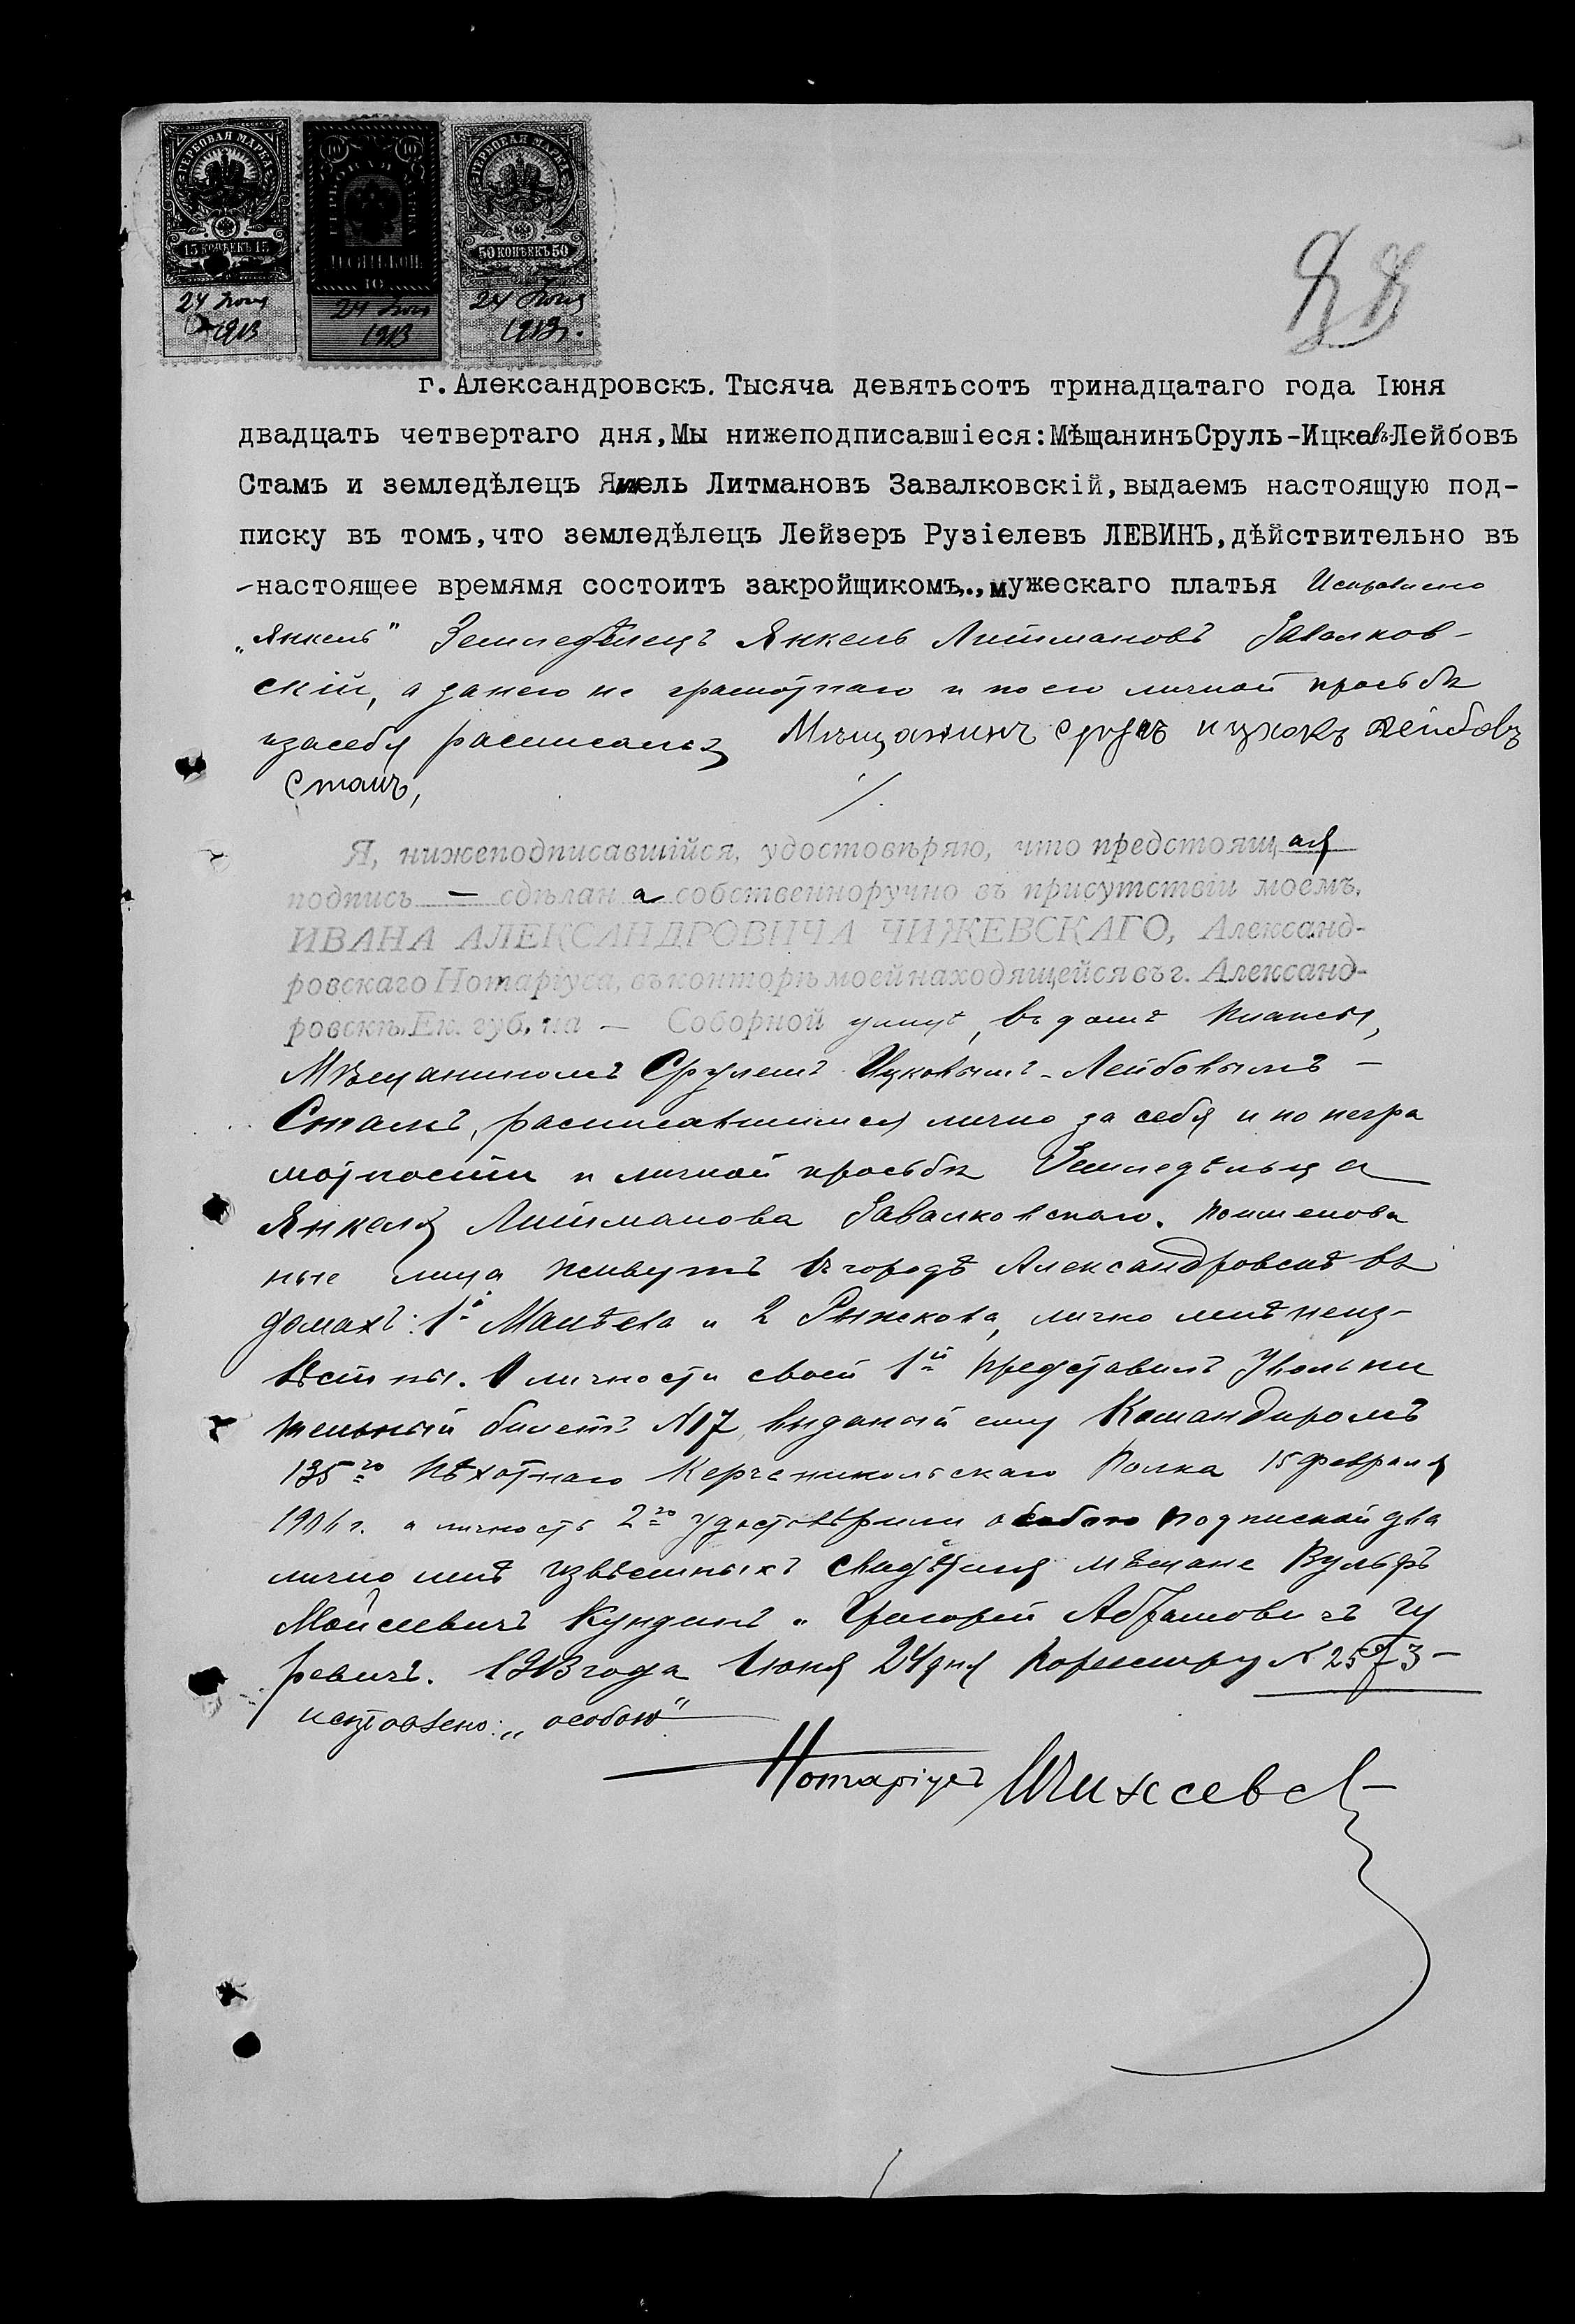 ГЕРБОВАЯ МАРКА
15 КОПѢЕКЪ 15
24 Іюня
1913
10 10
10
24 Іюня
1913
ГЕРБОВАЯ МАРКА
50 КОПѢЕКЪ 50
24 Іюня
1913 г.
г. Александровскъ. Тысяча девятьсотъ тринадцатаго года Іюня
двадцать четвертаго дня, Мы нижеподписавшіеся: Мѣщанинъ Сруль-Ицковъ Лейбовъ
Стамъ и земледѣлецъ Янкель Литмановъ Завалковскій, выдаемъ настоящую под-
писку въ томъ, что земледѣлецъ Лейзеръ Рузіелевъ ЛЕВИНЪ, дѣйствительно въ
-настоящее времямя состоитъ закройщикомъ,., мужескаго платья Исправлено
„Янкель" Земледѣлецъ Янкель Литмановъ Завалков-
скій, а за него не грамотнаго и по его личной просьбѣ
и за себя расписался Мѣщанинъ Сруль Ицковъ Лейбовъ
Стамъ,
Я, нижеподписавшійся, удостовѣряю, что предстоящая
подпись — сдѣлана собственноручно въ присутствіи моемъ,
ИВАНА АЛЕКСАНДРОВИЧА ЧИЖЕВСКАГО, Александ-
ровскаго Нотаріуса, въ конторѣ моей находящейся въ г. Александ-
ровскѣ, Ек. губ. на — Соборной улицѣ, въ домѣ
Мѣщаниномъ Срулемъ Ицковымъ-Лейбовымъ —
Стамъ, расписавшимся лично за себя и по негра
мотности и личной просьбѣ Земледѣльца
Янкеля Литманова Завалковскаго. Поименова
ные лица живутъ въ городѣ Александровскѣ въ
домахъ: 1й Манѣева и 2 Рыжкова, лично мнѣ неиз-
вѣстны. О личности своей 1й представилъ Увольни
тельный билетъ №17, выданый ему Командиромъ
135го Пѣхотнаго Керченикольскаго Полка 15 февраля
1906 г. а личность 2го удостовѣрили особою подпиской два
лично мнѣ извѣстныхъ свидѣтеля мѣщане Вульфъ
Мойсеевичъ Кундинъ и Григорій Абрамовичъ Гу
ревичъ. 1913 года Іюня 24 дня По реестру № 2573 —
исправлено: „особою"
Нотаріусъ Чижевс